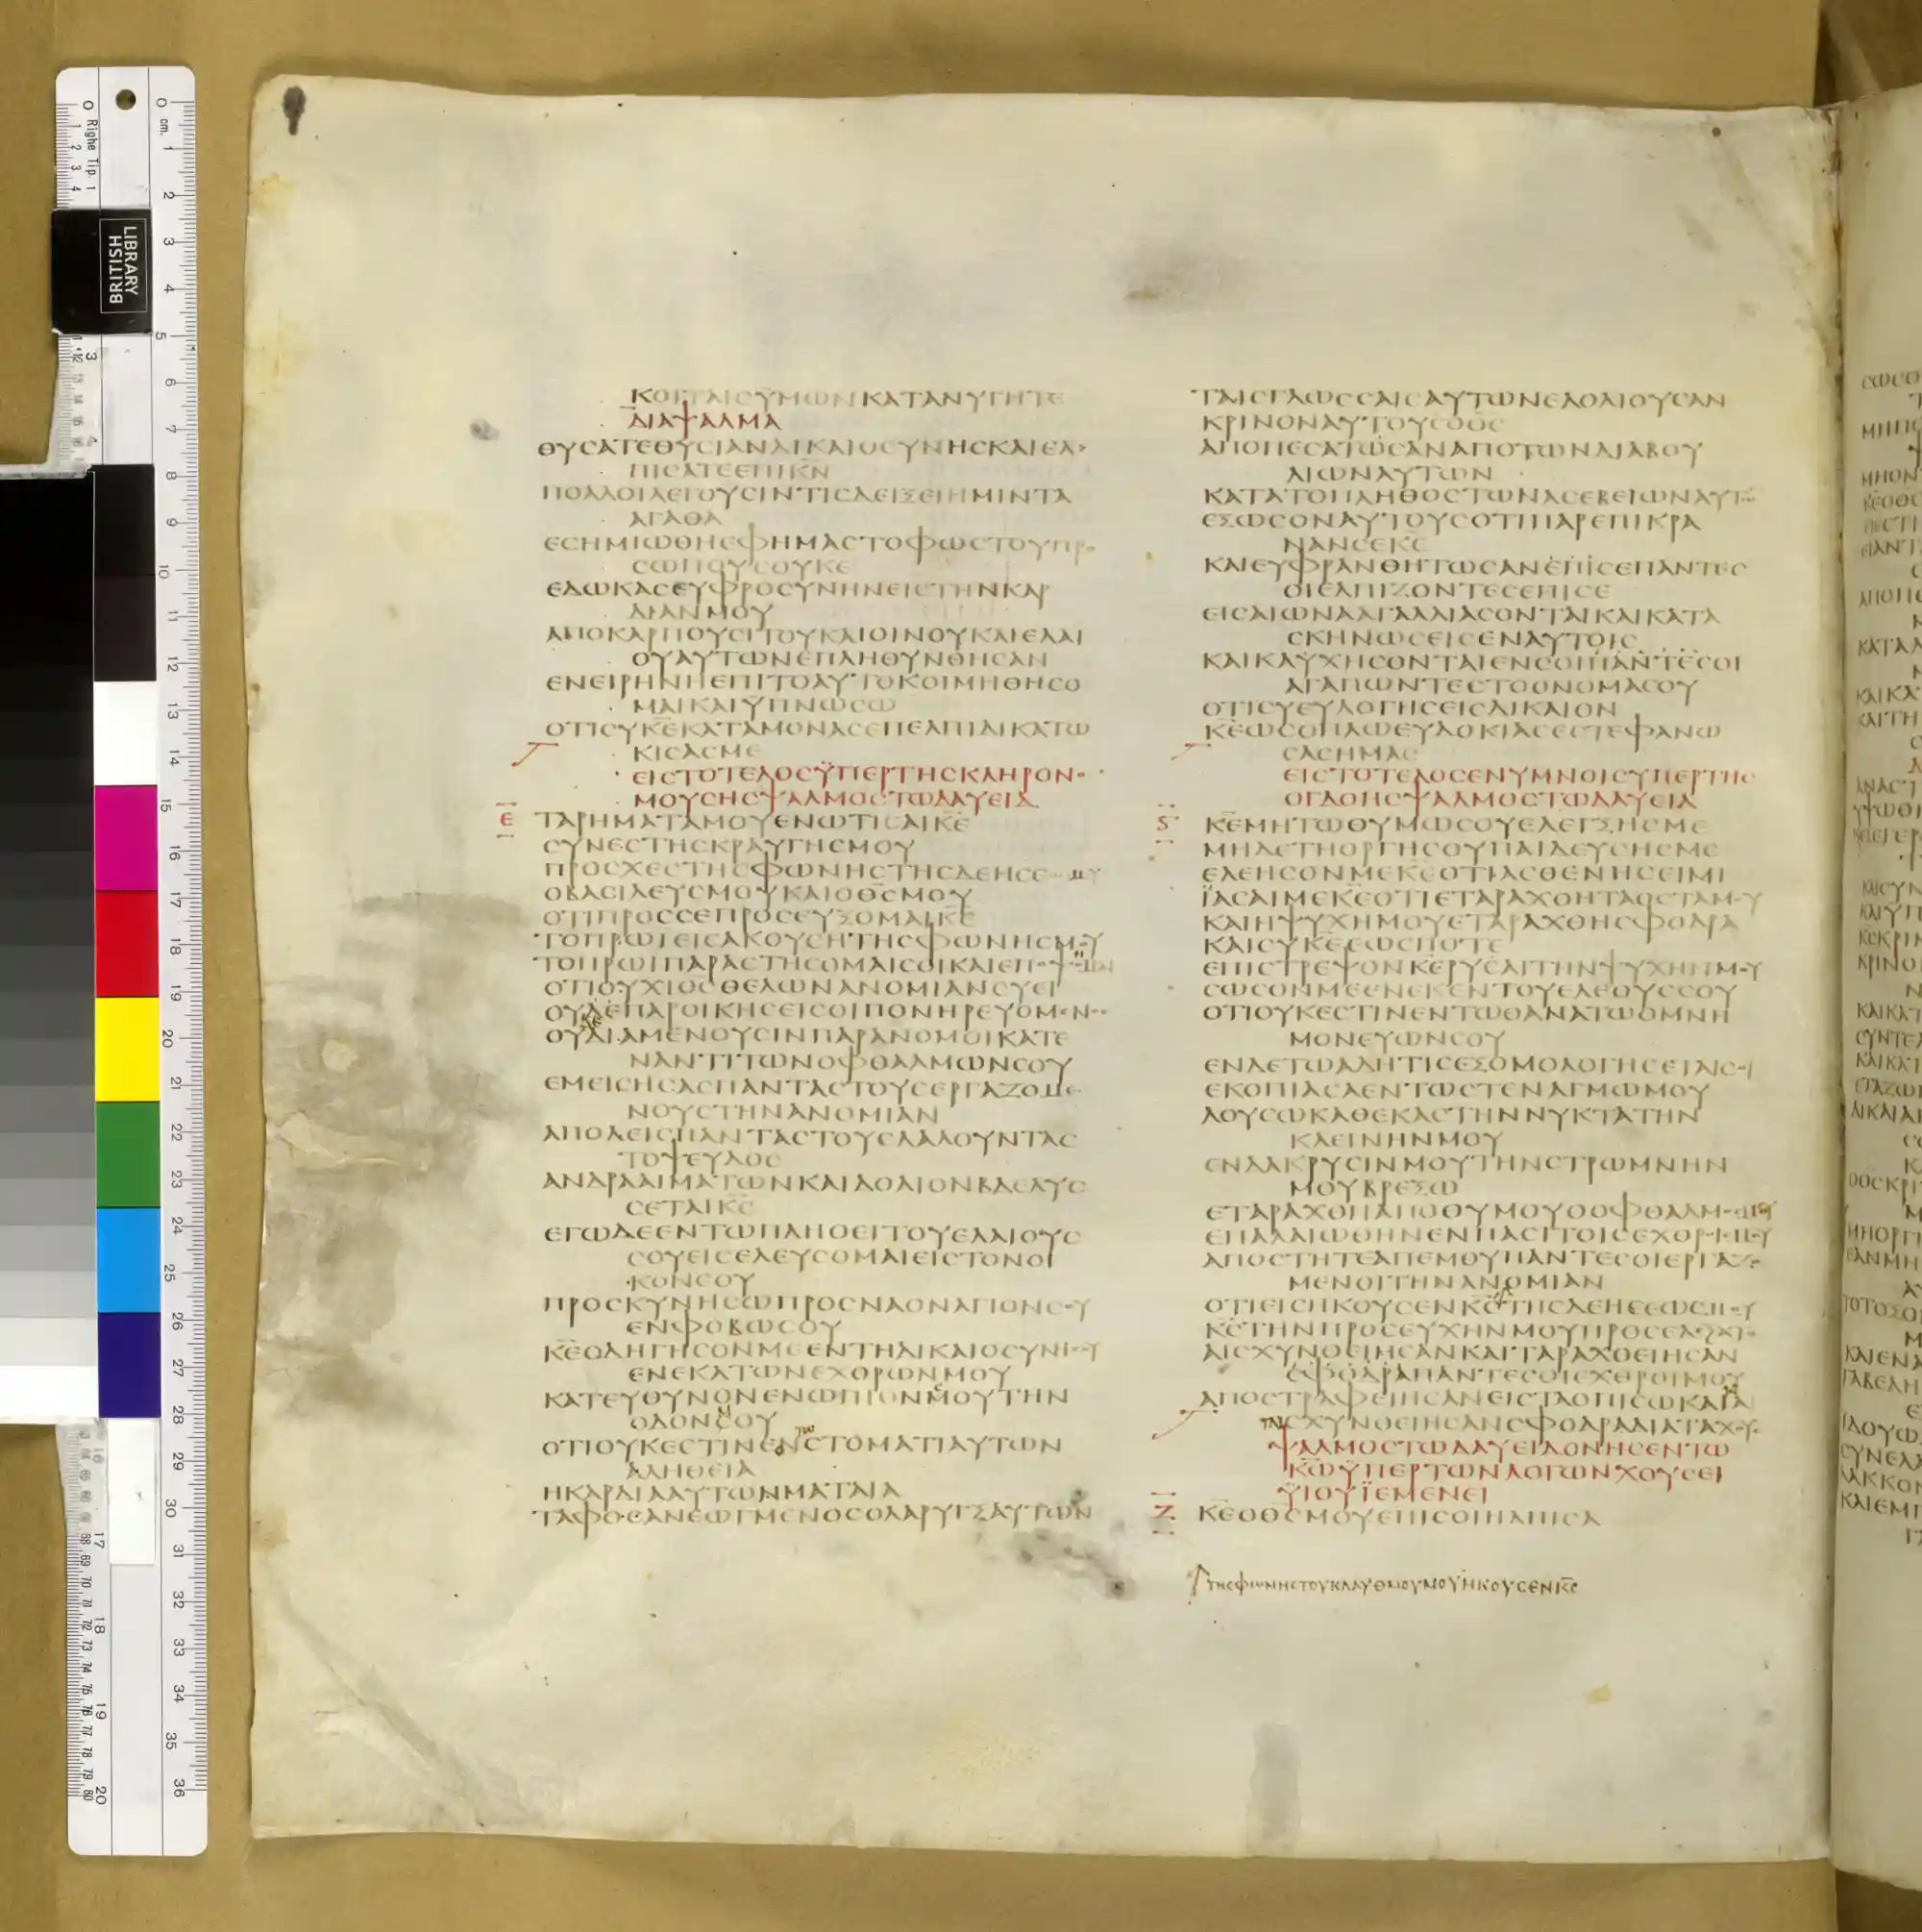 ΚΟΙΤΑΙΣΥΜΩΝΚΑΤΑΝΥΓΗΤΕ
ΔΙΑΨΑΛΜΑ
ΘΥϹΑΤΕΘΥϹΙΑΝΔΙΚΑΙΟϹΥΝΗϹΚΑΙΕΛ
ΠΙϹΑΤΕΕΠΙΚ̅Ν̅
ΠΟΛΛΟΙΛΕΓΟΥϹΙΝΤΙϹΔΕΙΞΕΙΗΜΙΝΤΑ
ΑΓΑΘΑ
ΕϹΗΜΙΩΘΗΕΦΗΜΑϹΤΟΦΩϹΤΟΥΠΡΟ
ϹΩΠΟΥϹΟΥΚ̅Ε̅
ΕΔΩΚΑϹΕΥΦΡΟϹΥΝΗΝΕΙϹΤΗΝΚΑΡ
ΔΙΑΝΜΟΥ
ΑΠΟΚΑΡΠΟΥϹΙΤΟΥΚΑΙΟΙΝΟΥΚΑΙΕΛΑΙ
ΟΥΑΥΤΩΝΕΠΛΗΘΥΝΘΗϹΑΝ
ΕΝΕΙΡΗΝΗΕΠΙΤΟΑΥΤΟΚΟΙΜΗΘΗϹΟ
ΜΑΙΚΑΙΫΠΝΩϹΩ
ΟΤΙϹΥΚ̅Ε̅ΚΑΤΑΜΟΝΑϹΕΠΕΛΠΙΔΙΚΑΤΩ
ΚΙϹΑϹΜΕ
ΕΙϹΤΟΤΕΛΟϹΫΠΕΡΤΗϹΚΛΗΡΟΝΟ
ΜΟΥϹΗϹΨΑΛΜΟϹΤΩΔΑΥΕΙΔ
Ε̅ ΤΑΡΗΜΑΤΑΜΟΥΕΝΩΤΙϹΑΙΚ̅Ε̅
ϹΥΝΕϹΤΗϹΚΡΑΥΓΗϹΜΟΥ
ΠΡΟϹΧΕϹΤΗϹΦΩΝΗϹΤΗϹΔΕΗϹΕΩϹΜΟΥ
ΟΒΑϹΙΛΕΥϹΜΟΥΚΑΙΟΘ̅Ϲ̅ΜΟΥ
ΟΤΙΠΡΟϹϹΕΠΡΟϹΕΥΞΟΜΑΙΚ̅Ε̅
ΤΟΠΡΩΙΕΙϹΑΚΟΥϹΗΤΗϹΦΩΝΗϹΜΟΥ
ΤΟΠΡΩΙΠΑΡΑϹΤΗϹΟΜΑΙϹΟΙΚΑΙΕΠΟΨΟΜΑΙ
ΟΤΙΟΥΧΙΟϹΘΕΛΩΝΑΝΟΜΙΑΝϹΥΕΙ
ΟΥΔΕΠΑΡΟΙΚΗϹΕΙϹΟΙΠΟΝΗΡΕΥΟΜΕΝΟϹ
ΟΥΔΙΑΜΕΝΟΥϹΙΝΠΑΡΑΝΟΜΟΙΚΑΤΕ
ΝΑΝΤΙΤΩΝΟΦΘΑΛΜΩΝϹΟΥ
ΕΜΕΙϹΗϹΑϹΠΑΝΤΑϹΤΟΥϹΕΡΓΑΖΟΜΕ
ΝΟΥϹΤΗΝΑΝΟΜΙΑΝ
ΑΠΟΛΕΙϹΠΑΝΤΑϹΤΟΥϹΛΑΛΟΥΝΤΑϹ
ΤΟΨΕΥΔΟϹ
ΑΝΔΡΑΑΙΜΑΤΩΝΚΑΙΔΟΛΙΟΝΒΔΕΛΥϹ
ϹΕΤΑΙΚ̅Ϲ̅
ΕΓΩΔΕΕΝΤΩΠΛΗΘΕΙΤΟΥΕΛΑΙΟΥϹ
ϹΟΥΕΙϹΕΛΕΥϹΟΜΑΙΕΙϹΤΟΝΟΙ
ΚΟΝϹΟΥ
ΠΡΟϹΚΥΝΗϹΩΠΡΟϹΝΑΟΝΑΓΙΟΝϹΟΥ
ΕΝΦΟΒΩϹΟΥ
Κ̅Ε̅ΟΔΗΓΗϹΟΝΜΕΕΝΤΗΔΙΚΑΙΟϹΥΝΗϹΟΥ
ΕΝΕΚΑΤΩΝΕΧΘΡΩΝΜΟΥ
ΚΑΤΕΥΘΥΝΟΝΕΝΩΠΙΟΝΜΟΥΤΗΝ
ΟΔΟΝϹΟΥ
ΟΤΙΟΥΚΕϹΤΙΝΕΝϹΤΟΜΑΤΙΑΥΤΩΝ
ΑΛΗΘΕΙΑ
ΗΚΑΡΔΙΑΑΥΤΩΝΜΑΤΑΙΑ
ΤΑΦΟϹΑΝΕΩΓΜΕΝΟϹΟΛΑΡΥΓΞΑΥΤΩΝ
ΤΑΙϹΓΛΩϹϹΑΙϹΑΥΤΩΝΕΔΟΛΙΟΥϹΑΝ
ΚΡΙΝΟΝΑΥΤΟΥϹΟΘ̅Ϲ̅
ΑΠΟΠΕϹΑΤΩϹΑΝΑΠΟΤΩΝΔΙΑΒΟΥ
ΛΙΩΝΑΥΤΩΝ
ΚΑΤΑΤΟΠΛΗΘΟϹΤΩΝΑϹΕΒΕΙΩΝΑΥΤΩ
ΕΞΩϹΟΝΑΥΤΟΥϹΟΤΙΠΑΡΕΠΙΚΡΑ
ΝΑΝϹΕΚ̅Ε̅
ΚΑΙΕΥΦΡΑΝΘΗΤΩϹΑΝΕΠΙϹΕΠΑΝΤΕϹ
ΟΙΕΛΠΙΖΟΝΤΕϹΕΠΙϹΕ
ΕΙϹΑΙΩΝΑΑΓΑΛΛΙΑϹΟΝΤΑΙΚΑΙΚΑΤΑ
ϹΚΗΝΩϹΕΙϹΕΝΑΥΤΟΙϹ
ΚΑΙΚΑΥΧΗϹΟΝΤΑΙΕΝϹΟΙΠΑΝΤΕϹΟΙ
ΑΓΑΠΩΝΤΕϹΤΟΟΝΟΜΑϹΟΥ
ΟΤΙϹΥΕΥΛΟΓΗϹΕΙϹΔΙΚΑΙΟΝ
Κ̅Ε̅ΩϹΟΠΛΩΕΥΔΟΚΙΑϹΕϹΤΕΦΑΝΩ
ϹΑϹΗΜΑϹ
ΕΙϹΤΟΤΕΛΟϹΕΝΥΜΝΟΙϹΥΠΕΡΤΗϹ
ΟΓΔΟΗϹΨΑΛΜΟϹΤΩΔΑΥΕΙΔ
Ϛ̅ Κ̅Ε̅ΜΗΤΩΘΥΜΩϹΟΥΕΛΕΓΞΗϹΜΕ
ΜΗΔΕΤΗΟΡΓΗϹΟΥΠΑΙΔΕΥϹΗϹΜΕ
ΕΛΕΗϹΟΝΜΕΚ̅Ε̅ΟΤΙΑϹΘΕΝΗϹΕΙΜΙ
ΪΑϹΑΙΜΕΚ̅Ε̅ΟΤΙΕΤΑΡΑΧΘΗΤΑΟϹΤΑΜΟΥ
ΚΑΙΗΨΥΧΗΜΟΥΕΤΑΡΑΧΘΗϹΦΟΔΡΑ
ΚΑΙϹΥΚ̅Ε̅ΕΩϹΠΟΤΕ
ΕΠΙϹΤΡΕΨΟΝΚ̅Ε̅ΡΥϹΑΙΤΗΝΨΥΧΗΝΜΟΥ
ϹΩϹΟΝΜΕΕΝΕΚΕΝΤΟΥΕΛΕΟΥϹϹΟΥ
ΟΤΙΟΥΚΕϹΤΙΝΕΝΤΩΘΑΝΑΤΩΟΜΝΗ
ΜΟΝΕΥΩΝϹΟΥ
ΕΝΔΕΤΩΑΔΗΤΙϹΕΞΟΜΟΛΟΓΗϹΕΤΑΙϹΟΙ
ΕΚΟΠΙΑϹΑΕΝΤΩϹΤΕΝΑΓΜΩΜΟΥ
ΛΟΥϹΩΚΑΘΕΚΑϹΤΗΝΝΥΚΤΑΤΗΝ
ΚΛΕΙΝΗΝΜΟΥ
ΕΝΔΑΚΡΥϹΙΝΜΟΥΤΗΝϹΤΡΩΜΝΗΝ
ΜΟΥΒΡΕΞΩ
ΕΤΑΡΑΧΘΗΑΠΟΘΥΜΟΥΟΟΦΘΑΛΜΟϹΜΟΥ
ΕΠΑΛΑΙΩΘΗΝΕΝΠΑϹΙΤΟΙϹΕΧΘΡΟΙϹΜΟΥ
ΑΠΟϹΤΗΤΕΑΠΕΜΟΥΠΑΝΤΕϹΟΙΕΡΓΑΖΟ
ΜΕΝΟΙΤΗΝΑΝΟΜΙΑΝ
ΟΤΙΕΙϹΗΚΟΥϹΕΝΚ̅Ϲ̅ΤΗϹΔΕΗϹΕΩϹΜΟΥ
Κ̅Ϲ̅ΤΗΝΠΡΟϹΕΥΧΗΝΜΟΥΠΡΟϹΕΔΕΞΑΤΟ
ΑΙϹΧΥΝΘΕΙΗϹΑΝΚΑΙΤΑΡΑΧΘΕΙΗϹΑΝ
ϹΦΟΔΡΑΠΑΝΤΕϹΟΙΕΧΘΡΟΙΜΟΥ
ΑΠΟϹΤΡΑΦΕΙΗϹΑΝΕΙϹΤΑΟΠΙϹΩΚΑΙΑ
ΙϹΧΥΝΘΕΙΗϹΑΝϹΦΟΔΡΑΔΙΑΤΑΧΟΥϹ
ΨΑΛΜΟϹΤΩΔΑΥΕΙΔΟΝΗϹΕΝΤΩ
Κ̅Ω̅ΫΠΕΡΤΩΝΛΟΓΩΝΧΟΥϹΕΙ
ΫΙΟΥΪΕΜΕΝΕΙ
Ζ̅ Κ̅Ε̅ΟΘ̅Ϲ̅ΜΟΥΕΠΙϹΟΙΗΛΠΙϹΑ
ΤΗϹΦΩΝΗϹΤΟΥΚΛΑΥΘΜΟΥΜΟΥΗΚΟΥϹΕΝΚ̅Ϲ̅